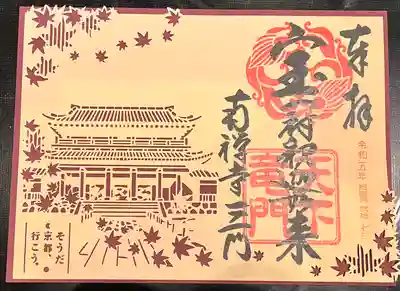 奉拝
令和五年
宝冠釈迦如来
天下
竜門
南禅寺三門
そうだ
京都、
行こう。